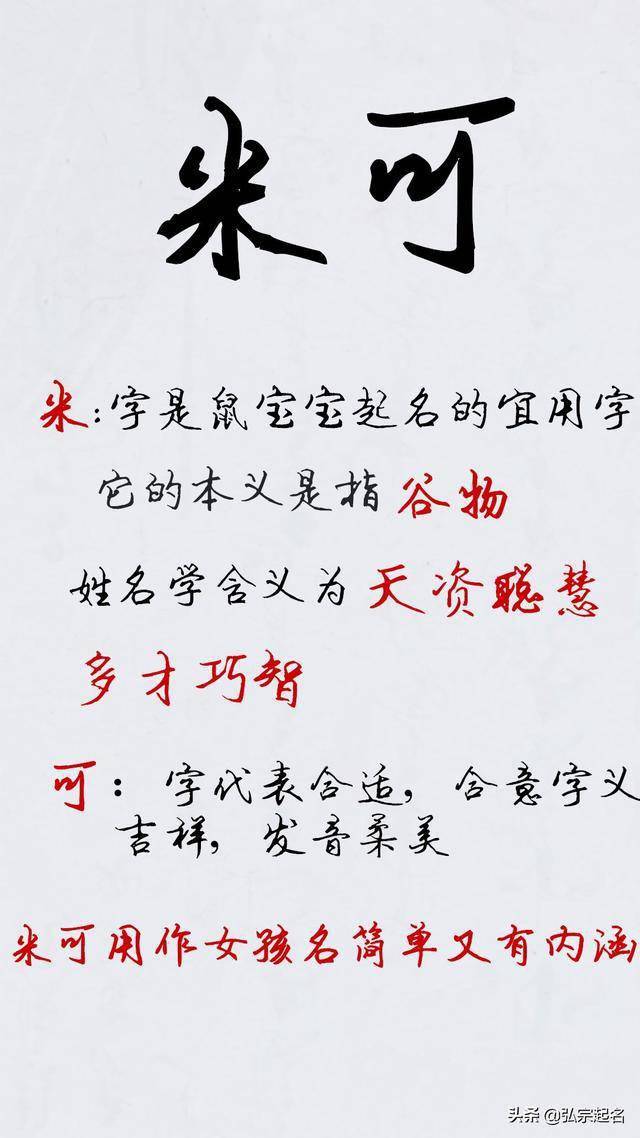 米可
米:字是鼠宝宝起名的宜用字
它的本义是指谷物
姓名学含义为天资聪慧
多才巧智
可：字代表合适，含意字义
吉祥，发音柔美
米可用作女孩名简单又有内涵
头条 @弘宗起名